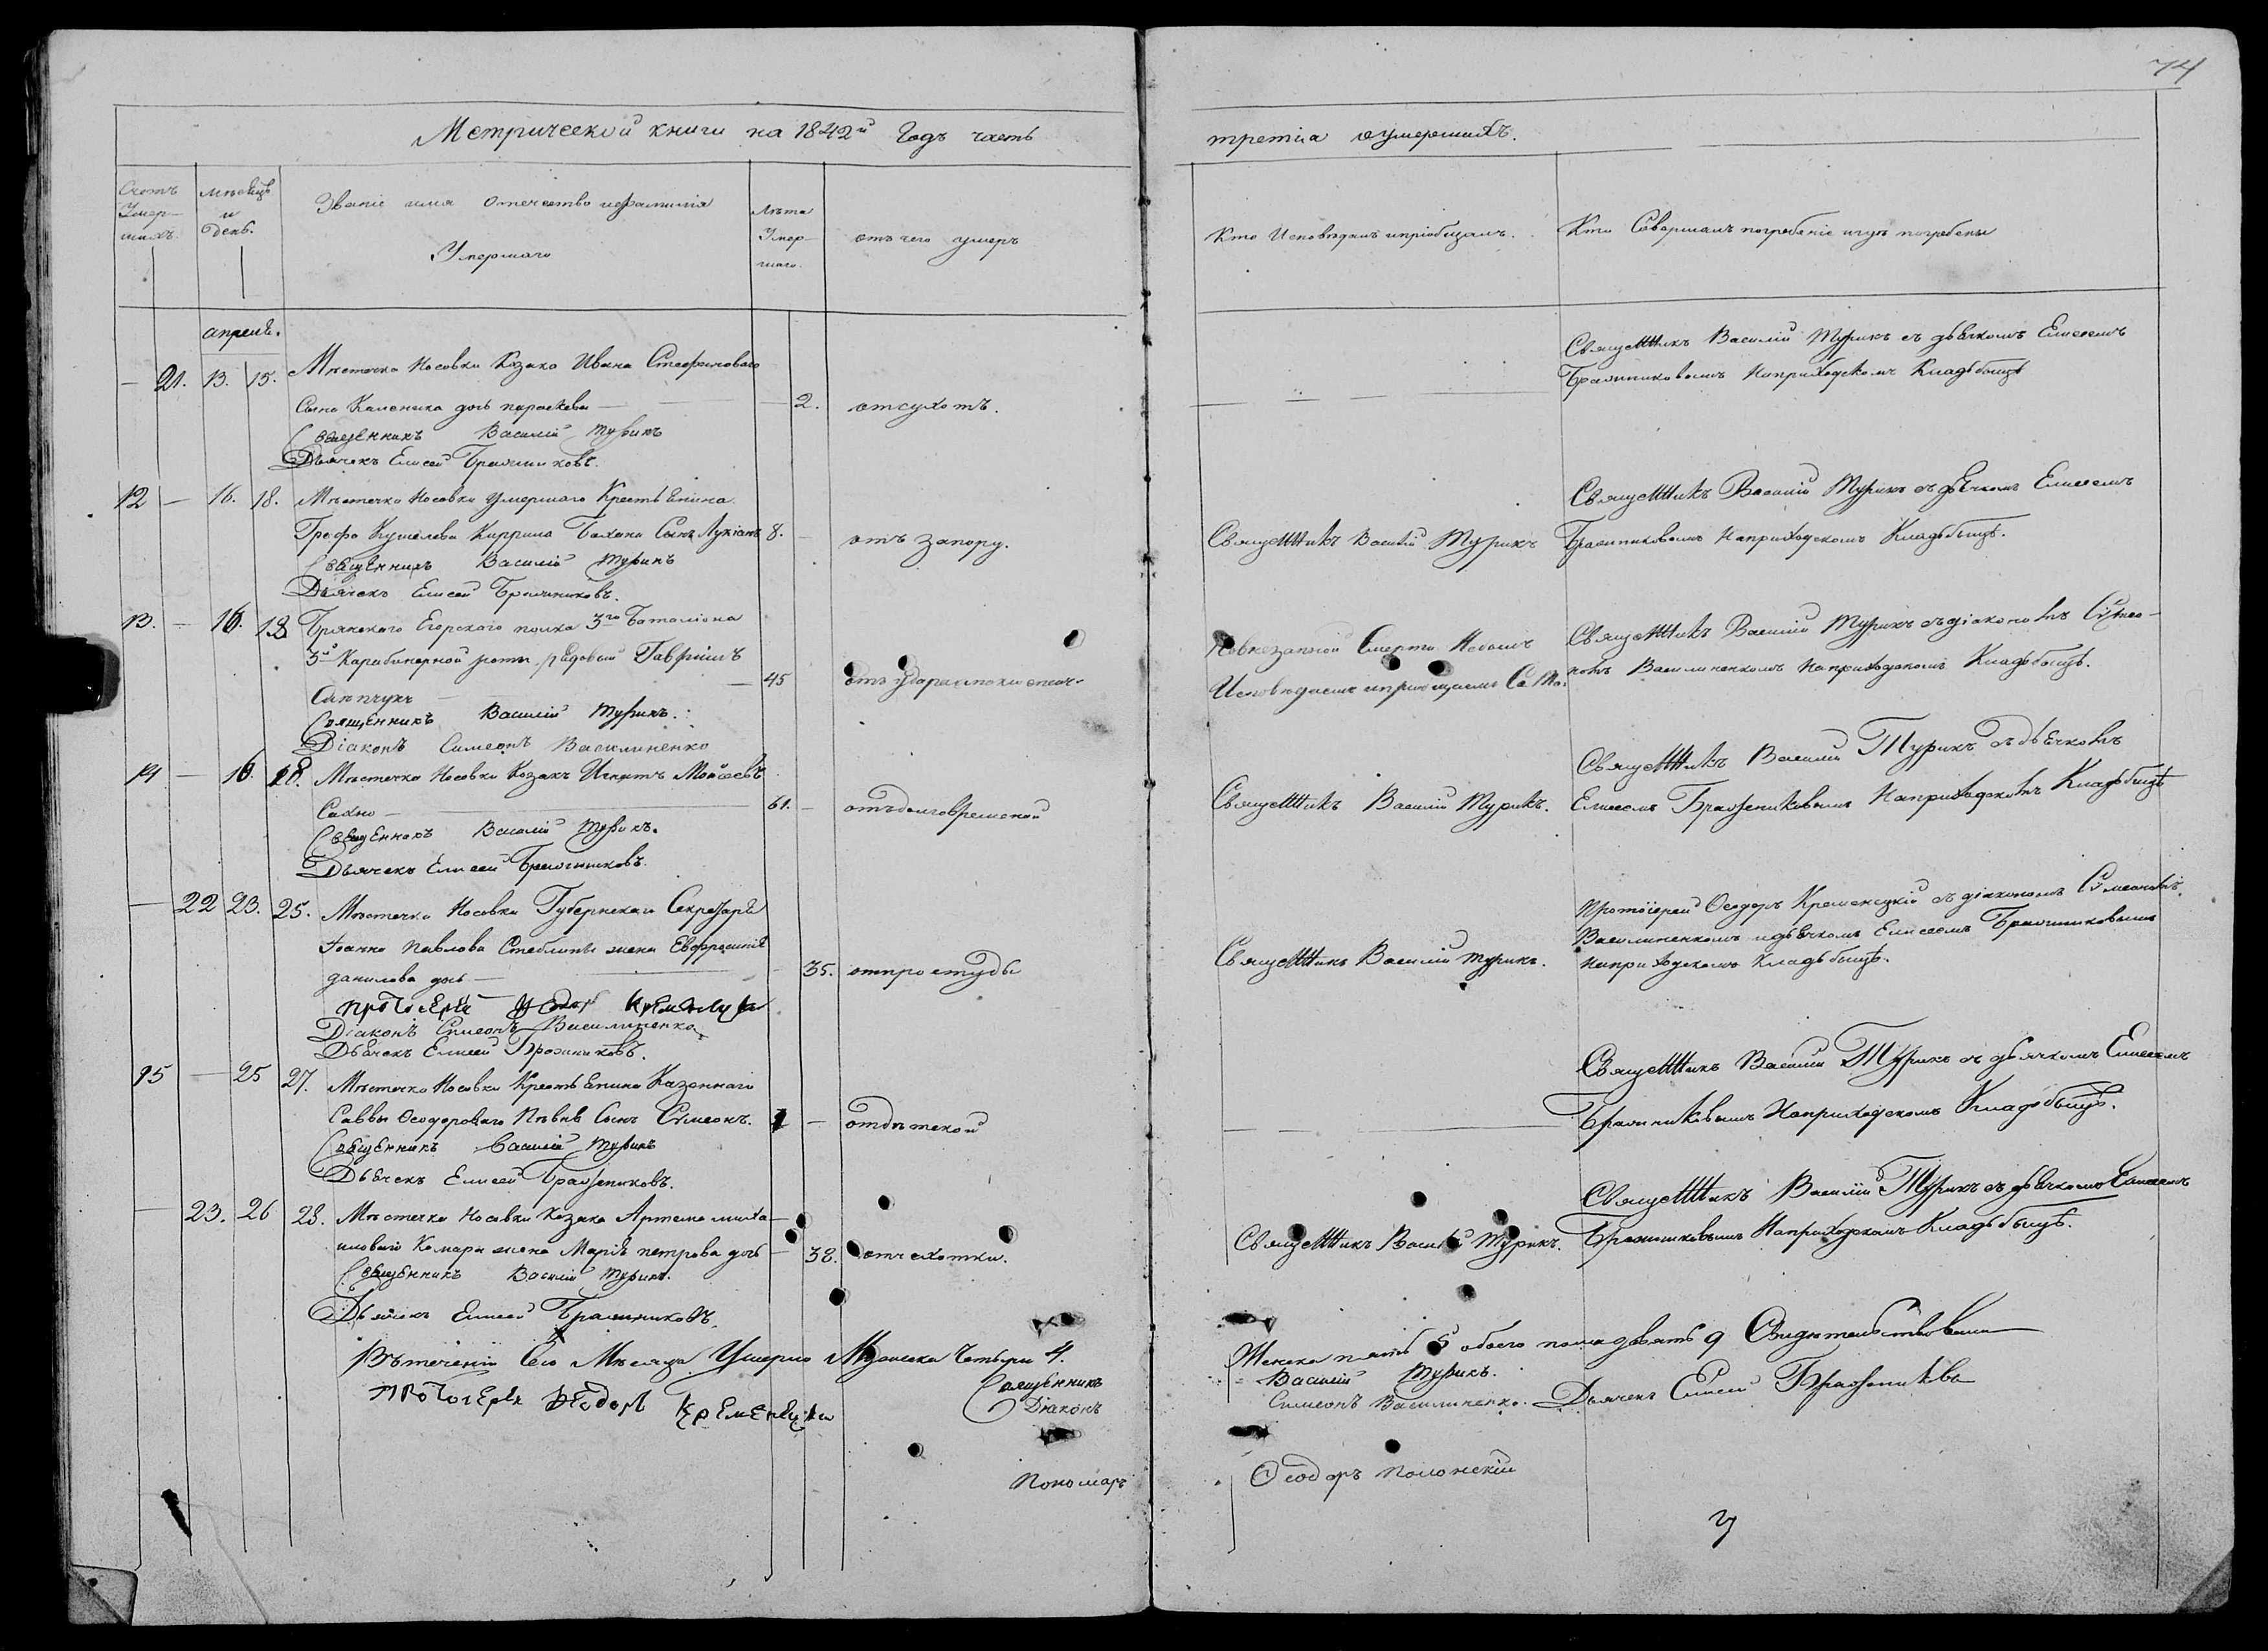 74
Метрической книги на 1842й Годъ часть
третіа оумершихъ.
Счетъ Умер-шихъ.
Мѣсяцъ и день.
Званіе имя отечество ифамилія Умершаго
Лѣта Умер-шаго.
отъ чего умеръ
Кто Исповѣдалъ ипріобщалъ.
Кто Совершалъ погребеніе игдѣ погребены
апреля.
— 21. 13. 15. Мѣстечка Носовки Козака Ивана Стефановаго
Сына дочь параскева — 2. отсухотъ.
Священникъ Василій Турикъ
Дьячекъ Елисей Бражниковъ.
Священникъ Василій Турикъ съ дьячкомъ Елисеемъ
Бражниковымъ Наприходскомъ Кладбыщѣ
12 — 16. 18. Мѣстечка Носовки умершаго Крестьянина
Графа Кушелева Кирила Сынъ Лукіанъ 8. — отъ запору.
Священникъ Василій Турикъ
Дьячекъ Елисей Бражниковъ.
Священникъ Василій Турикъ
Священникъ Василій Турикъ съ дьячкомъ Елисеемъ
Бражниковымъ Наприходскомъ Кладбыщѣ.
13. — 16. 18 Брянскаго Егерскаго полка 3го Баталіона
3й Карабинерной роты рядовый Гавріилъ
— 45
Священникъ Василій Турикъ.
Діаконъ Симеонъ Василиненко
Повнезапной Смерти Небылъ
Исповѣдаемъ ипріобщаемъ
Священникъ Василій Турикъ съдіакономъ Симео-
номъ Василиненкомъ Наприходскомъ Кладбыщѣ.
14 — 16. 18. Мѣстечка Носовки Козакъ Игнатъ Мойсѣевъ
Сахно — 61. — отъдолговременной
Священникъ Василій Турикъ.
Дьячекъ Елисей Бражниковъ.
Священникъ Василій Турикъ.
Священникъ Василій Турикъ съ дьячкомъ
Елисеемъ Бражниковымъ Наприходскомъ Кладбыщѣ
— 22 23. 25. Мѣстечка Носовки Губернскаго Секретаря
Іоанна Павлова жена Евфросинія
данилова дочь — 35. отпростуды
протоіерей Феодоръ Кременецкій
Діаконъ Симеонъ Василиненко
Дьячекъ Елисей Бражниковъ.
Священникъ Василій Турикъ.
Протоіерей Феодоръ Кременецкій съ діакономъ Симеономъ
Василиненкомъ идьячкомъ Елисеемъ Бражниковымъ
наприходскомъ Кладбыщѣ.
15 — 25 27. Мѣстечка Носовки Крестьянина Казеннаго
Саввы Феодороваго Сынъ Симеонъ. 1 — отдѣтской
Священникъ Василій Турикъ
Дьячекъ Елисей Бражниковъ.
Священникъ Василій Турикъ съ дьячкомъ Елисеемъ
Бражниковымъ Наприходскомъ Кладбыщѣ.
— 23. 26 28. Мѣстечка Носовки Козака Артема миха-
иловаго Комара жена Марія петрова дочь — 38. отчахотки.
Священникъ Василій Турикъ.
Дьячекъ Елисей Бражниковъ.
Священникъ Василій Турикъ.
Священникъ Василій Турикъ съ дьячкомъ Елисеемъ
Бражниковымъ Наприходскомъ Кладбыщѣ.
Втеченіи Сего Мѣсяца Умерло Мужеска Четыри 4.
Женска пять 5 обоего пола девять 9 Свидѣтельствовали
протоіерей Феодоръ Кременецкій
Священникъ Василій Турикъ.
Діаконъ Симеонъ Василиненко. Дьячекъ Елисей Бражниковъ
Пономарь Феодоръ Полонскій